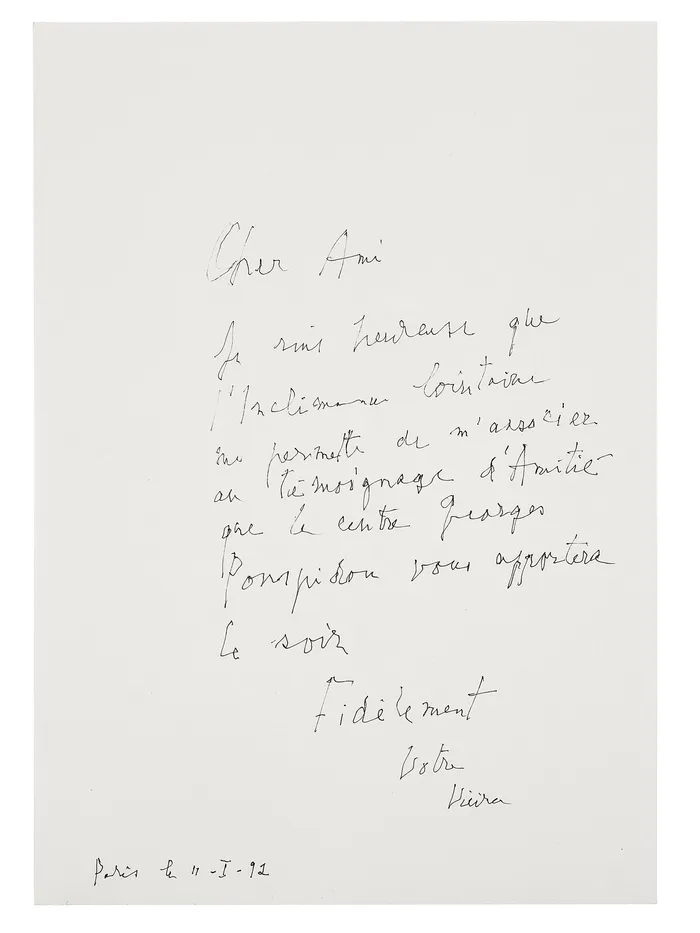 Cher Ami
Je suis heureuse que
lointaine
me permette de m'associer
au témoignage d'Amitié
que le centre Georges
Pompidou vous apportera
ce soir
Fidèlement
Votre
Vieira
Paris le 11 - I - 92